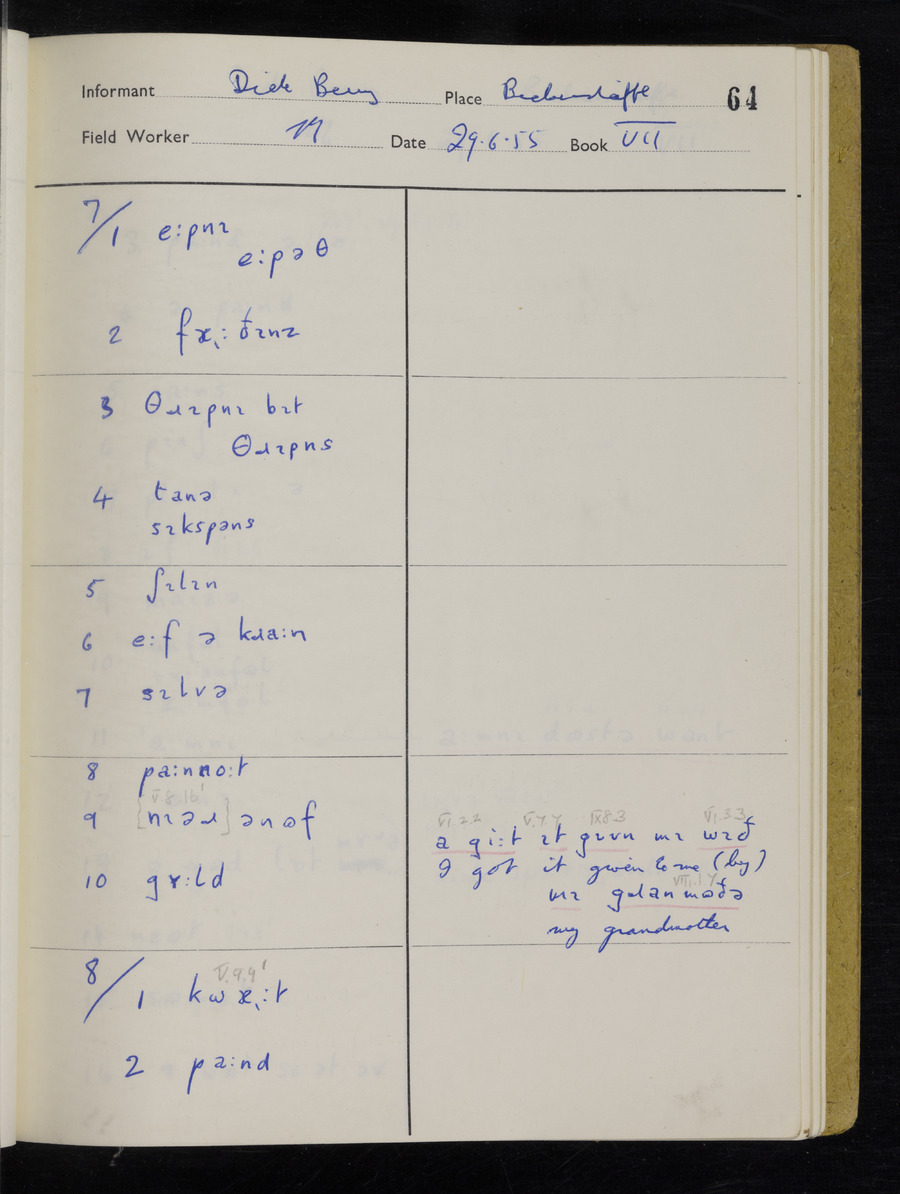 Informant Dick Place 64
Field Worker N Date 29.6.55 Book VII
7/1 e:pnɪ
e:pə θ
2 fᴂ˛:ðɪnz
3 θɹɪpnɪ bɪt
θɹɪpns
4 tanə
sɪkspəns
5 ʃɪlɪn
6 e:f ə kɹa:n
7 sɪlvə
8 pa:nno:t
V.8.16'
9 [nɪəɹ] ənɷf
10 gɤ:ld
VI.2.2 V.7.7 IX.8.3 VI.3.3
a gi:t ɪt gɪvn mɪ wɪð
I got it given to me (by)
VIII.1.4
mɪ gɹanmɷðə
my grandmother
V.9.9'
8/1 kɷᴂ˛:t
2 pa:nd